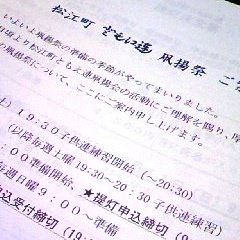 松江町 ともえ連 凧揚祭 ご
いよいよ凧揚祭の準備の季節がやってまいりました。
頃より松江町ともえ連凧揚会の活動にご理解を賜り、厚
の凧揚祭について、ここにご案内申し上げます。
土) 19:30 子供連練習開始 (~20:30)
(以降毎週土曜 19:30~20:30 子供連練習)
:00 準備開始、★提灯申込締切
毎週日曜 9:00~準備
申込受付締切 (19: